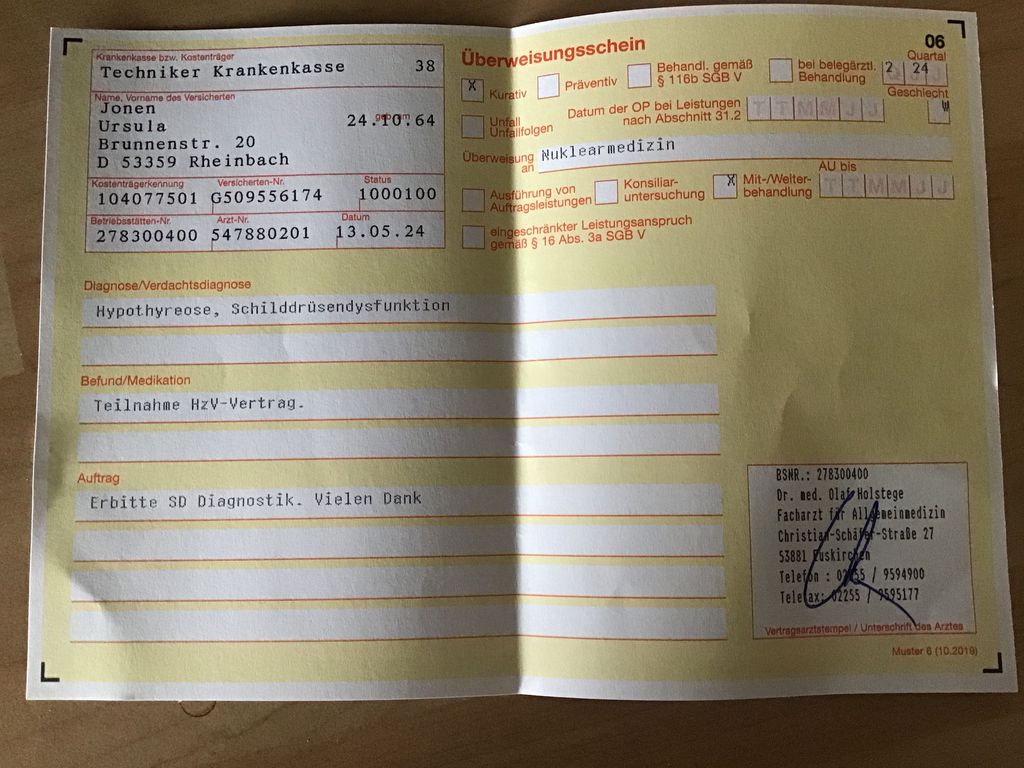 Krankenkasse bzw. Kostenträger
Techniker Krankenkasse 38
Name, Vorname des Versicherten
Jonen
Ursula
geb. am
24.10.64
Brunnenstr. 20
D 53359 Rheinbach
Kostenträgerkennung Versicherten-Nr. Status
104077501 G509556174 1000100
Betriebsstätten-Nr. Arzt-Nr. Datum
278300400 547880201 13.05.24
Überweisungsschein
06
Quartal
2 24
Q J J
X Kurativ
Präventiv
Behandl. gemäß
§ 116b SGB V
bei belegärztl.
Behandlung
Geschlecht
W
Unfall
Unfallfolgen
Datum der OP bei Leistungen
nach Abschnitt 31.2
T T M M J J
Überweisung
an
Nuklearmedizin
AU bis
T T M M J J
Ausführung von
Auftragsleistungen
Konsiliar-
untersuchung
X Mit-/Weiter-
behandlung
eingeschränkter Leistungsanspruch
gemäß § 16 Abs. 3a SGB V
Diagnose/Verdachtsdiagnose
Hypothyreose, Schilddrüsendysfunktion
Befund/Medikation
Teilnahme HzV-Vertrag.
Auftrag
Erbitte SD Diagnostik. Vielen Dank
BSNR.: 278300400
Dr. med. Olaf Holstege
Facharzt für Allgemeinmedizin
Christian-Schäfer-Straße 27
53881 Euskirchen
Telefon : 02255 / 9594900
Telefax: 02255 / 9595177
Vertragsarztstempel / Unterschrift des Arztes
Muster 6 (10.2019)